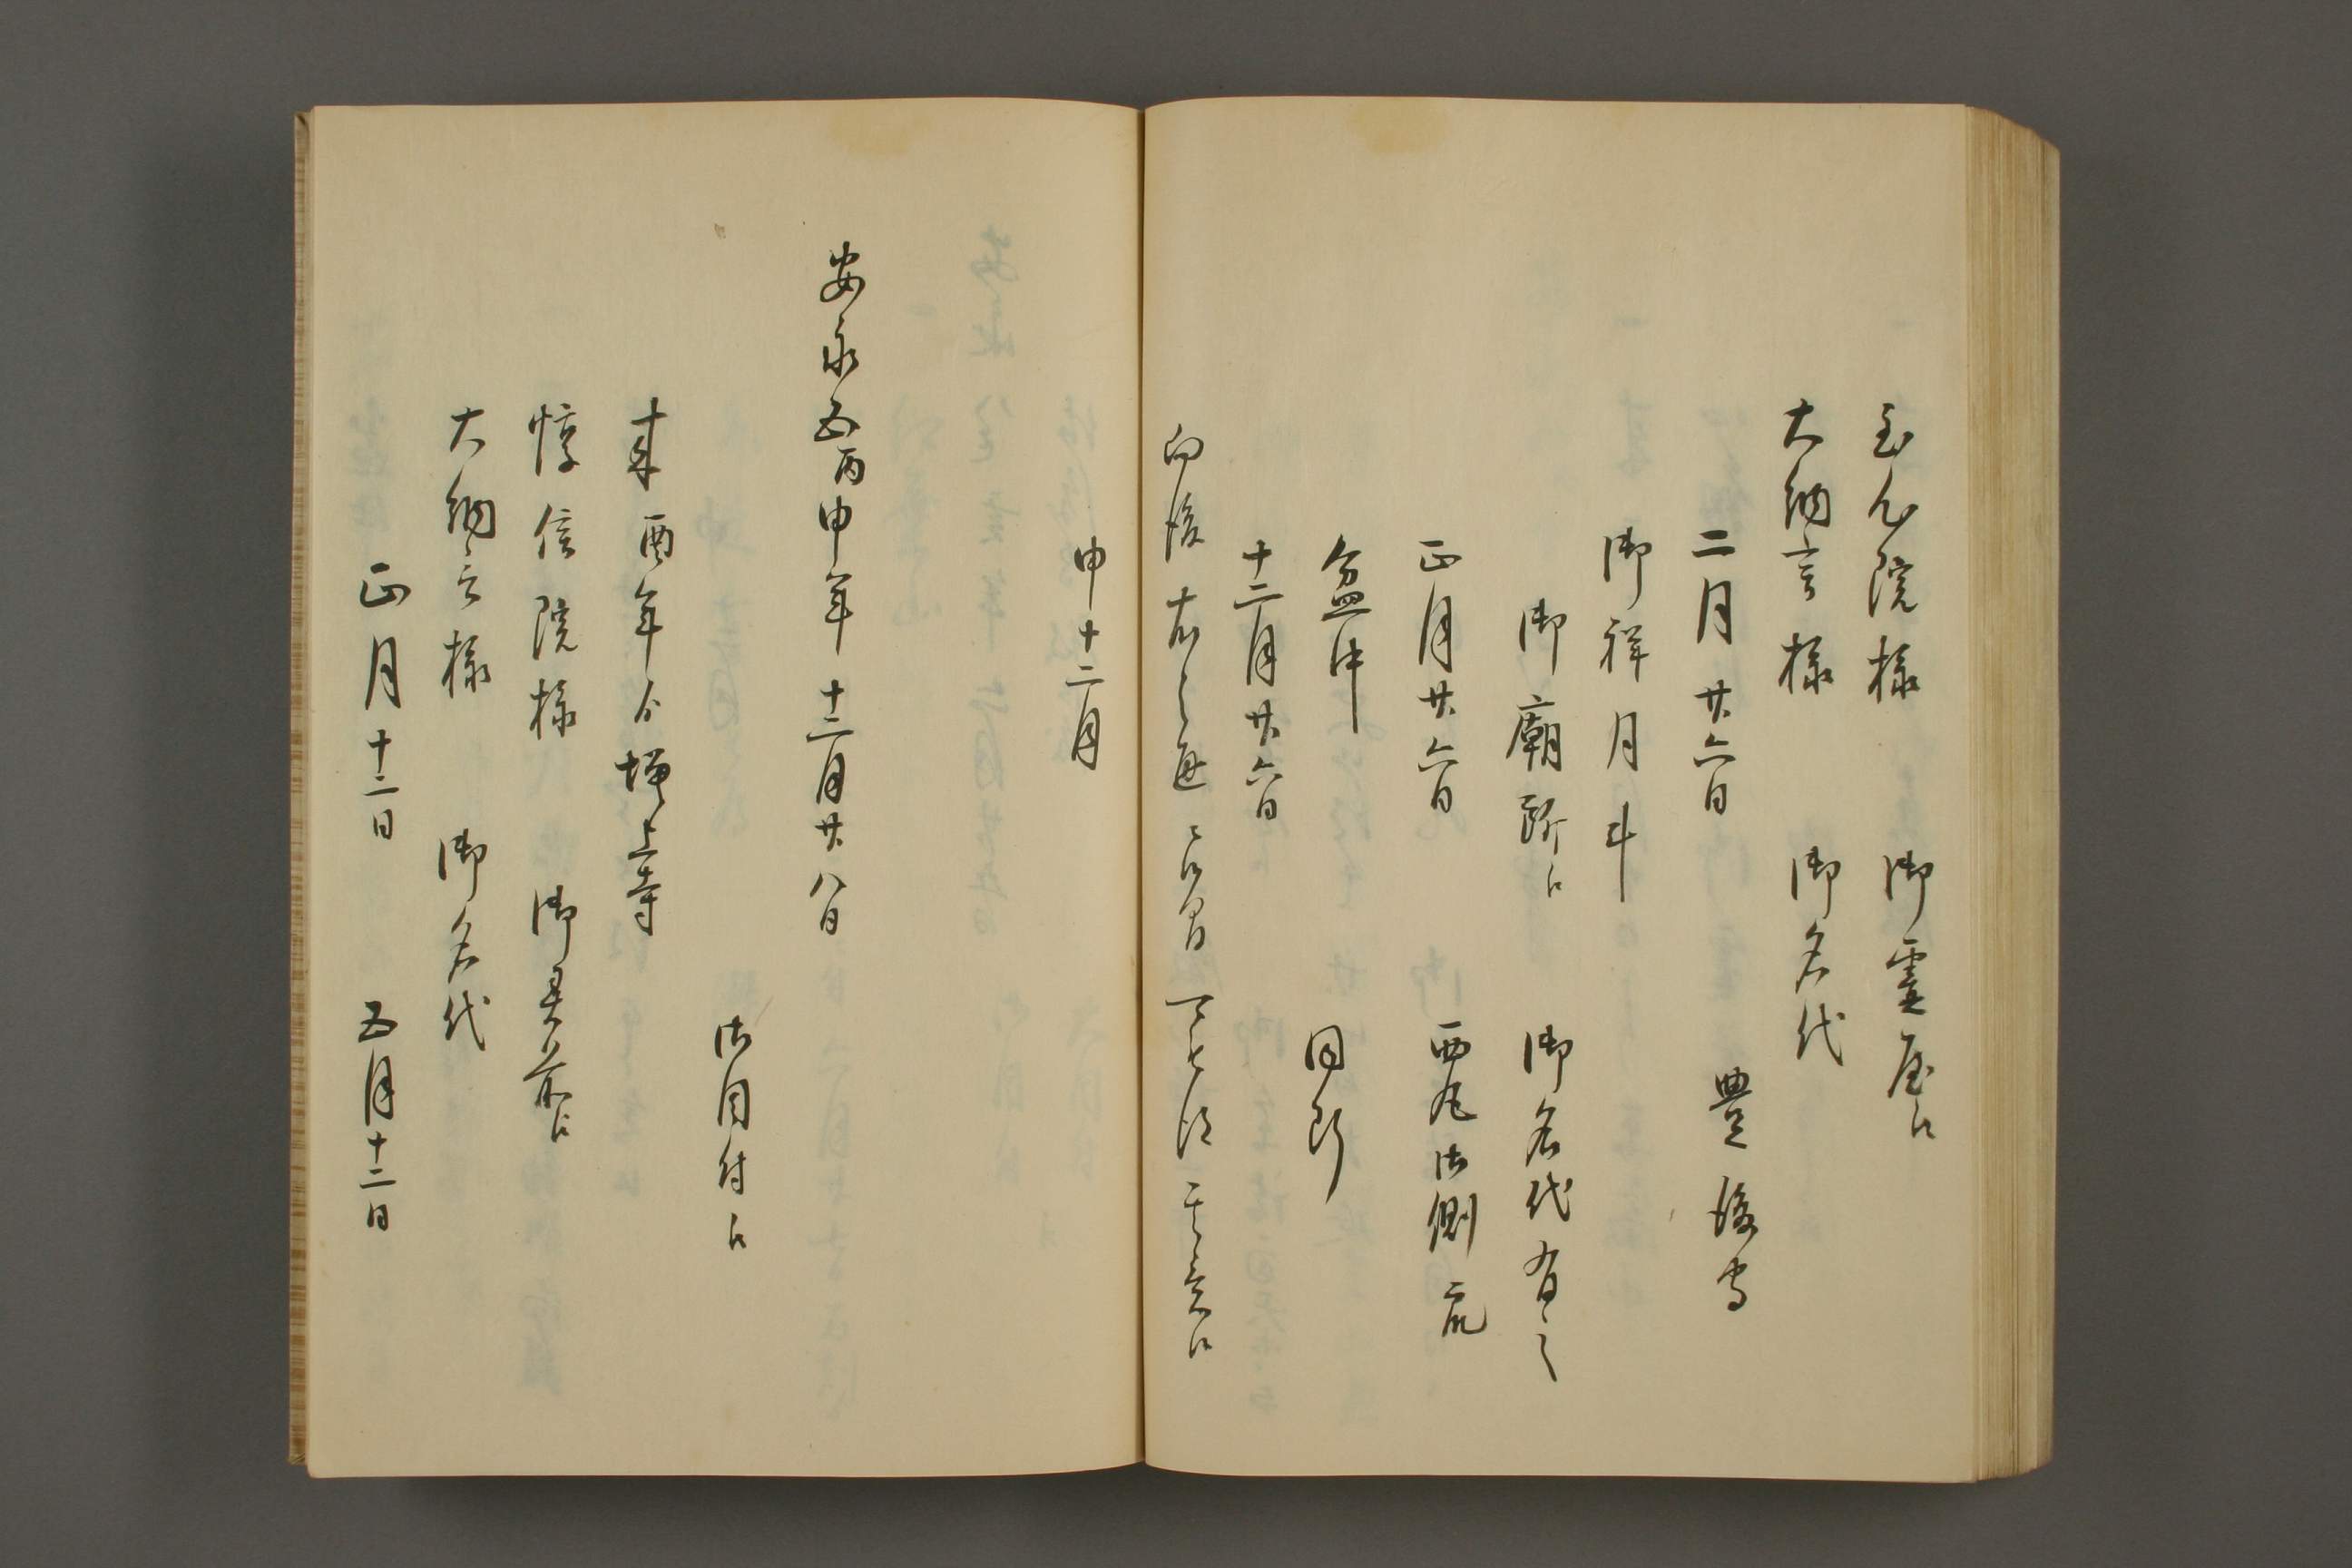 至心院様 御霊屋江
大納言様 御名代
二月廿六日 豊後守
御祥月斗
御廟所江 御名代有之
正月廿六日 西丸御側衆
盆中 同所
十二月廿六日
向後右之通
申十二月
安永五丙申年十二月廿八日
御目付江
来酉年ゟ増上寺
惇信院様 御霊前江
大納言様 御名代
正月十二日 五月十二日